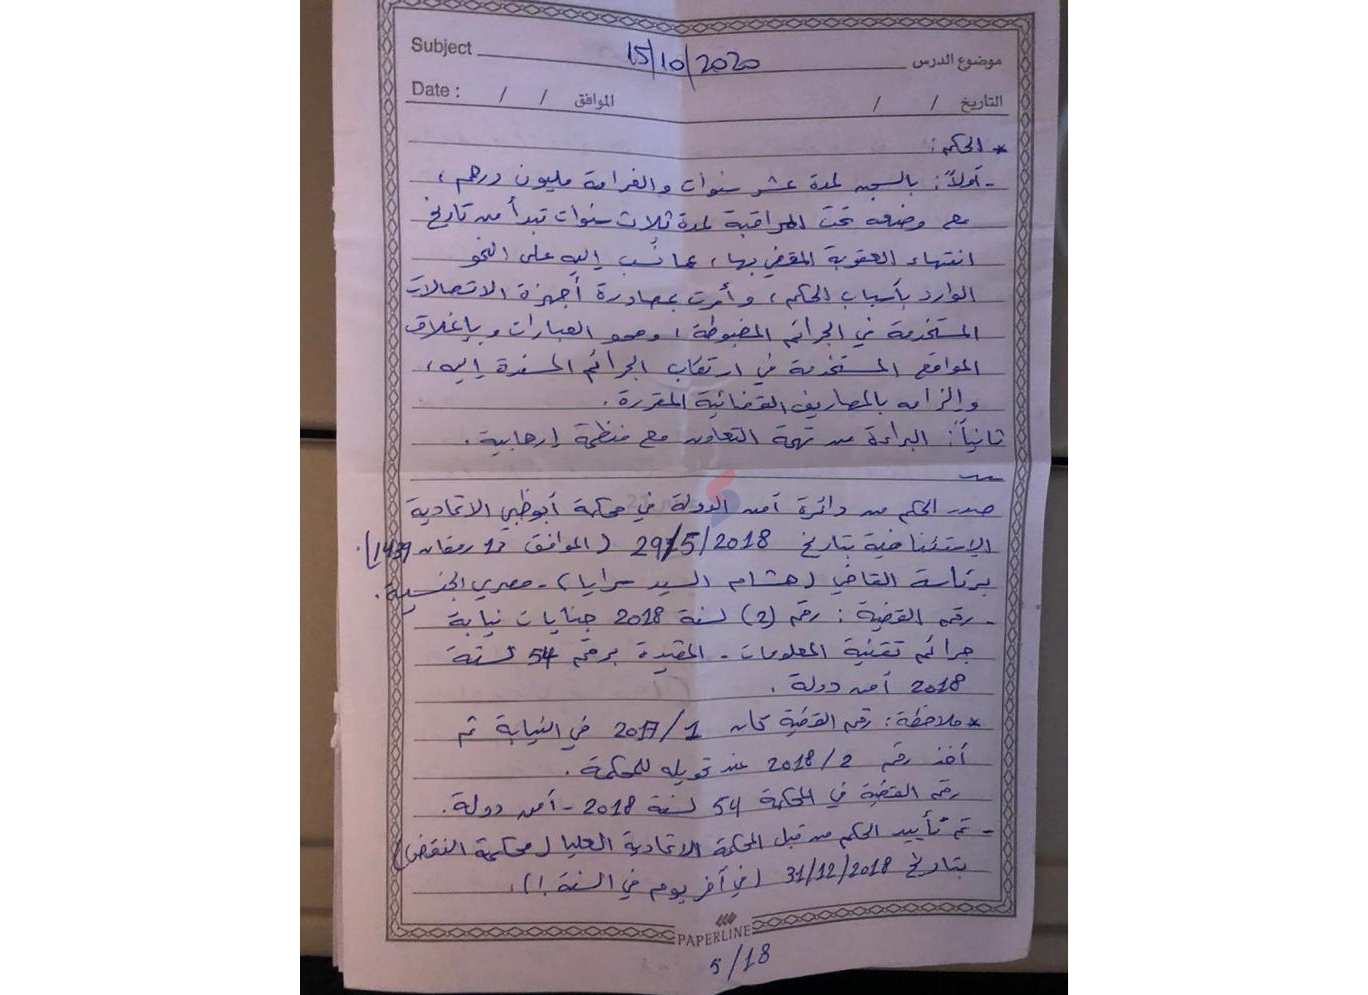 Subject 15/10/2020 موضوع الدرس
Date : / / الموافق / / التاريخ
* الحكم :
- أولاً : بالسجن لمدة عشر سنوات والغرامة مليون درهم ،
مع وضعه تحت المراقبة لمدة ثلاث سنوات تبدأ من تاريخ
انتهاء العقوبة المقضي بها ، عما نُسب إليه على النحو
الوارد بأسباب الحكم ، وأمرت بمصادرة أجهزة الاتصالات
المستخدمة في الجرائم المضبوطة ، ومحو العبارات وبإغلاق
المواقع المستخدمة في ارتكاب الجرائم المسندة إليه ،
وإلزامه بالمصاريف القضائية المقررة .
ثانياً : البراءة من تهمة التعاون مع منظمة إرهابية .
صدر الحكم من دائرة أمن الدولة في محكمة أبوظبي الاتحادية
الاستئنافية بتاريخ 29/5/2018 ( الموافق 13 رمضان 1439 ) .
برئاسة القاضي ( هشام السيد سرايا ) - مصري الجنسية .
- رقم القضية : رقم (2) لسنة 2018 جنايات نيابة
جرائم تقنية المعلومات - المقيدة برقم 54 لسنة
2018 أمن دولة .
* ملاحظة : رقم القضية كان 1/2017 في النيابة ثم
أخذ رقم 2/2018 عند تحويله للمحكمة .
رقم القضية في المحكمة 54 لسنة 2018 - أمن دولة .
- تم تأييد الحكم من قبل المحكمة الاتحادية العليا ( محكمة النقض )
بتاريخ 31/12/2018 ( في آخر يوم في السنة ! ) .
PAPERLINE
5/18